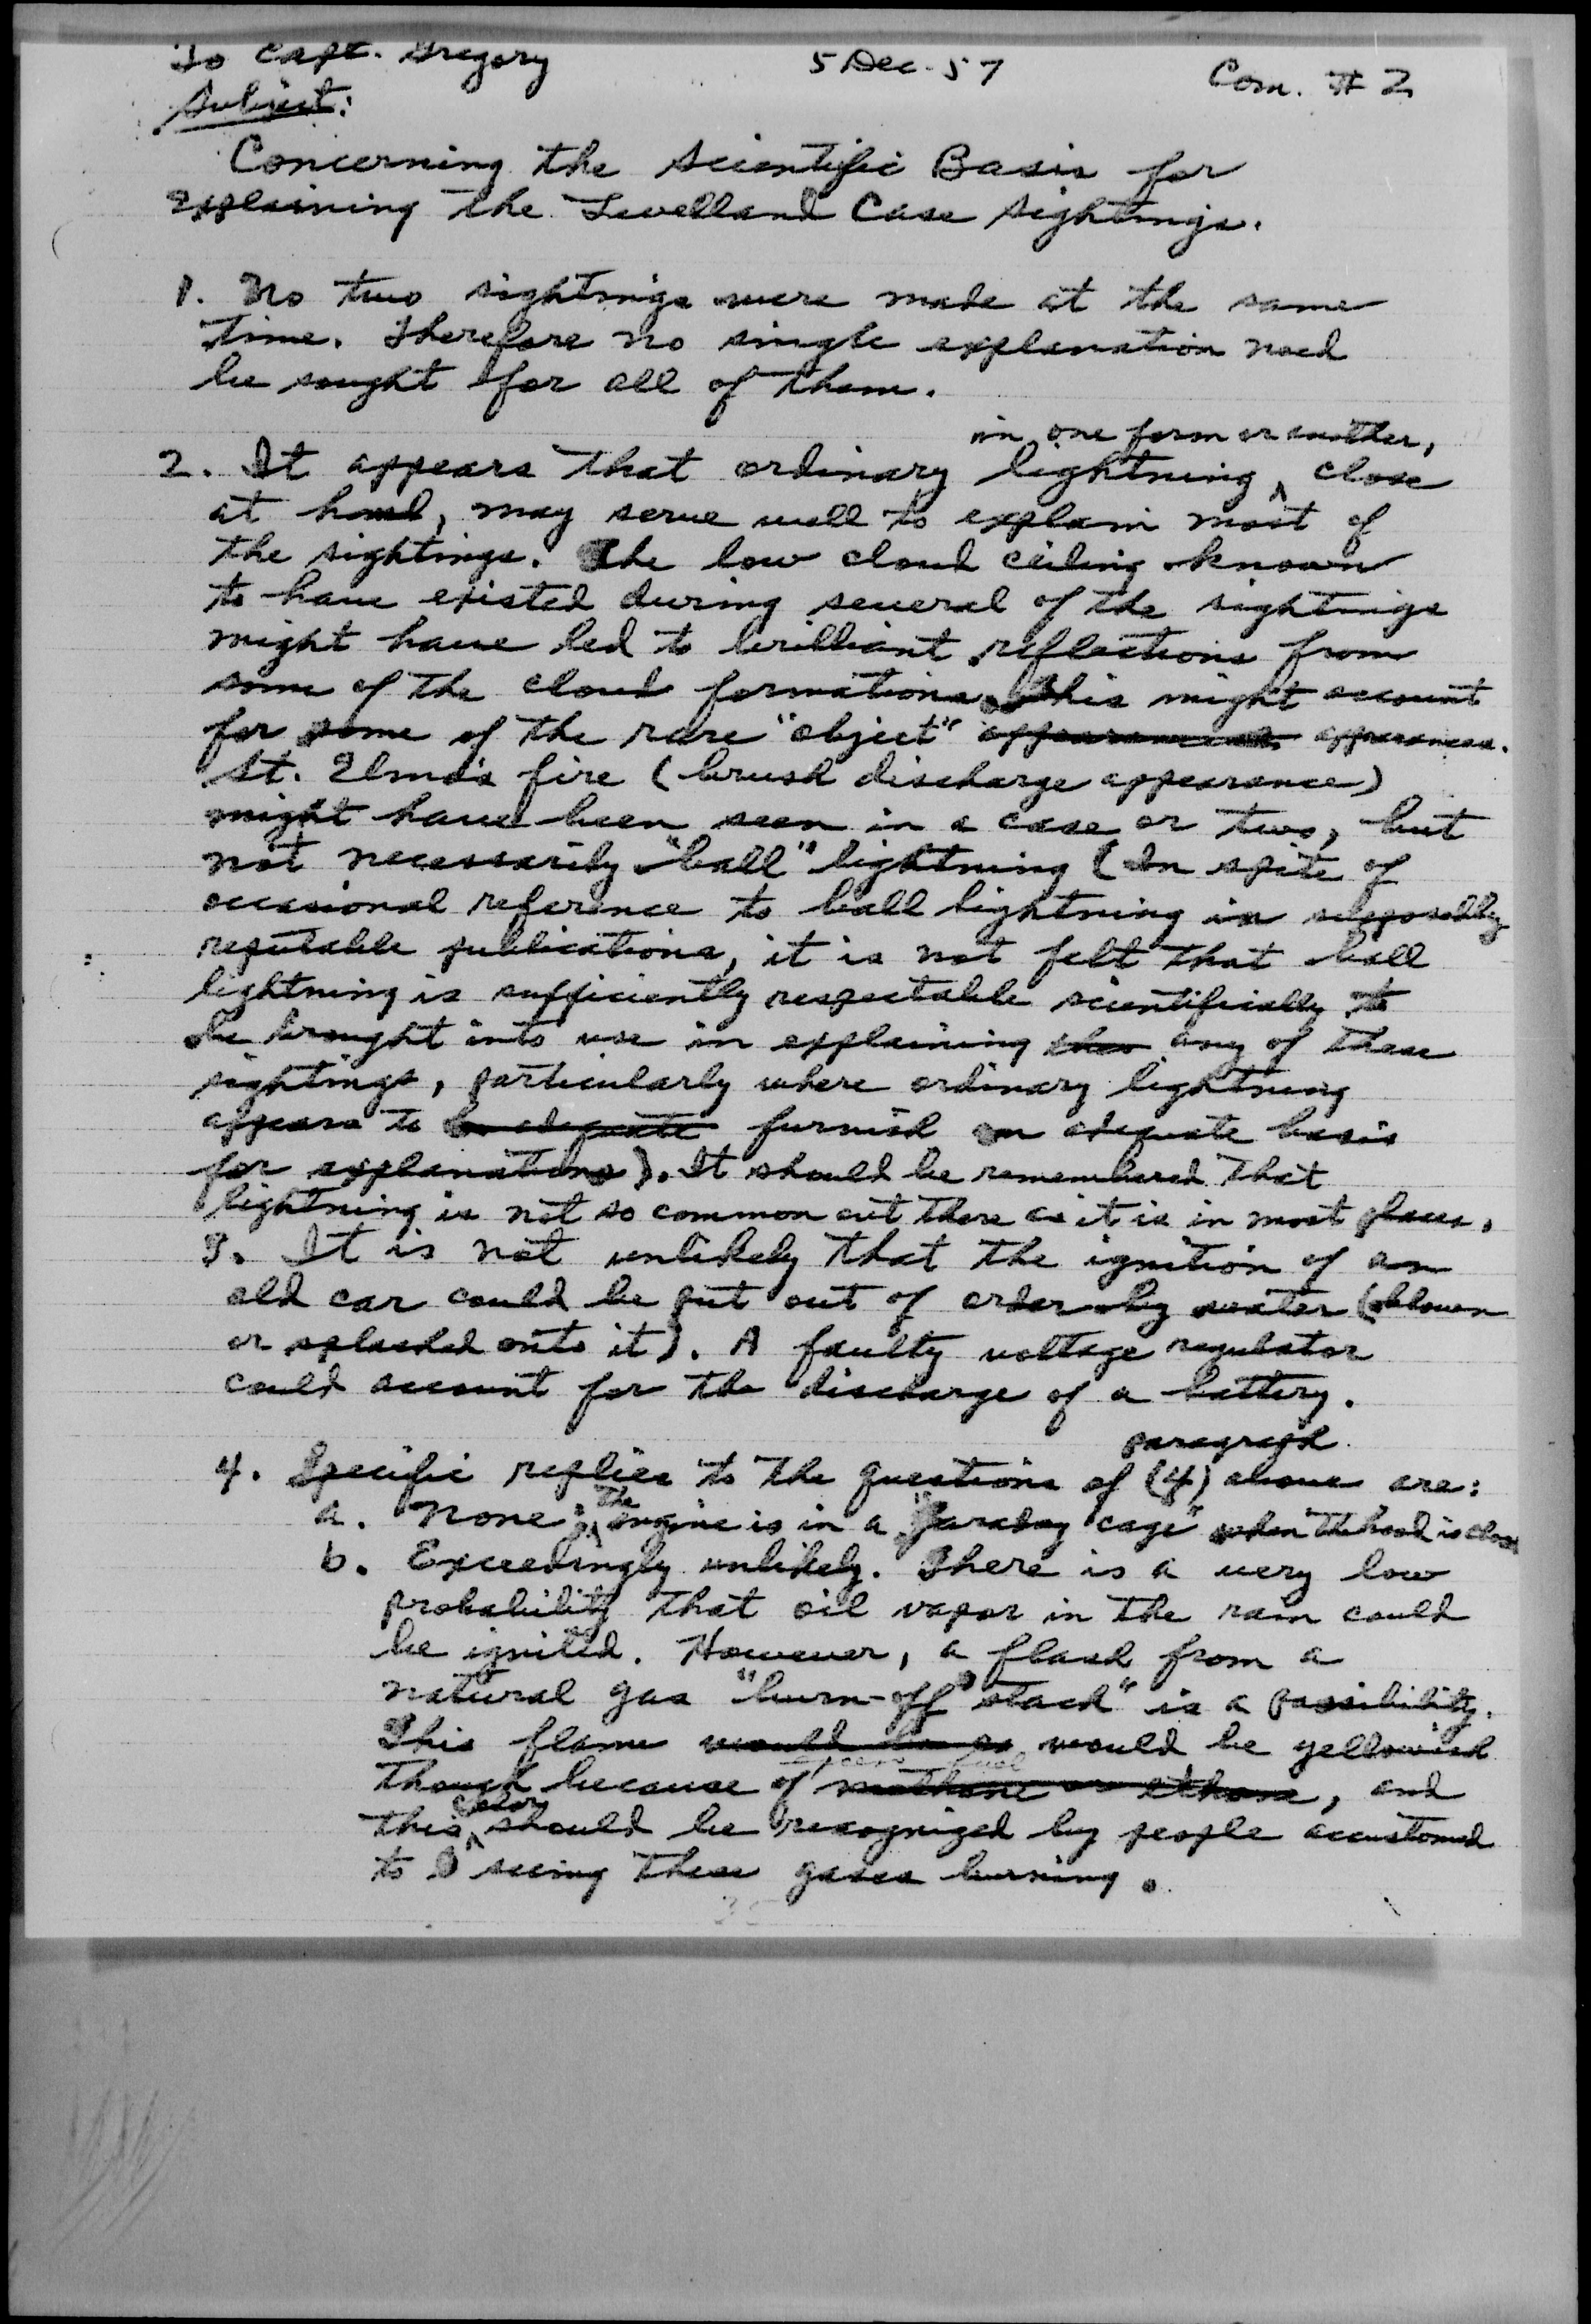 To Capt. Gregory 5 Dec. 57 Com. # 2
Subject:
Concerning the Scientific Basis for
Explaining the Levelland Case Sightings.
1. No two sightings were made at the same
time. Therefore no single explanation need
be sought for all of them.
in one form or another,
2. It appears that ordinary lightning, close
at hand, may serve well to explain most of
the sightings. The low cloud ceiling known
to have existed during several of the sightings
might have led to brilliant reflections from
some of the cloud formations. This might account
for some of the rare "object" appearances.
St. Elmo's fire (brush discharge appearance)
might have been seen in a case or two, but
not necessarily "ball" lightning (In spite of
occasional reference to ball lightning in supposedly
reputable publications, it is not felt that ball
lightning is sufficiently respectable scientifically to
be brought into use in explaining any of these
sightings, particularly where ordinary lightning
appears to be adequate furnish an adequate basis
for explanations). It should be remembered that
lightning is not so common out there as it is in most places.
3. It is not unlikely that the ignition of an
old car could be put out of order by water (blown
or splashed onto it). A faulty voltage regulator
could account for the discharge of a battery.
paragraph
4. Specific replies to the questions of (4) above are:
a. None; the engine is in a "Faraday cage" when the hood is closed
b. Exceedingly unlikely. There is a very low
probability that oil vapor in the rain could
be ignited. However, a flash from a
natural gas "burn-off stack" is a possibility.
This flame would be yellowish
though because of methane or ethane, and
this color should be recognized by people accustomed
to seeing these gases burning.